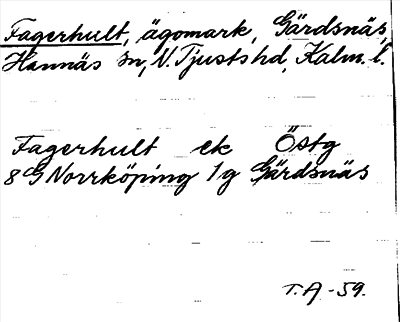 Fagerhult, ägomark, Gärdsnäs,
Hannäs sn, N. Tjusts hd, Kalm. l.
Fagerhult ek Östg
8G Norrköping 1g Gärdsnäs
T.A. -59.